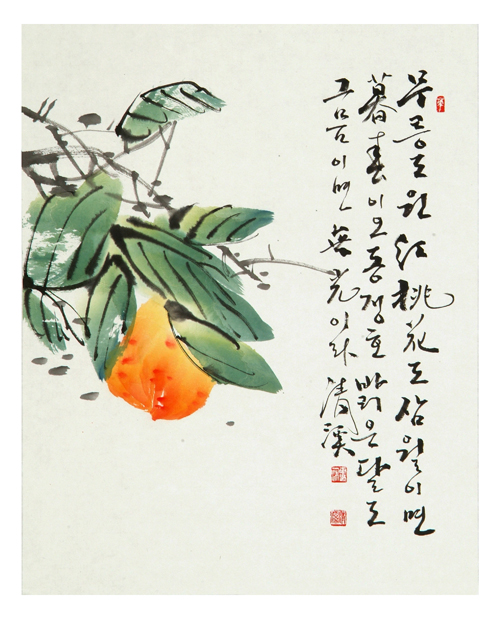 무릉도원 紅桃花도 삼월이면
暮春이오 동정호 밝은 달도
그믐이면 無光이라 淸溪